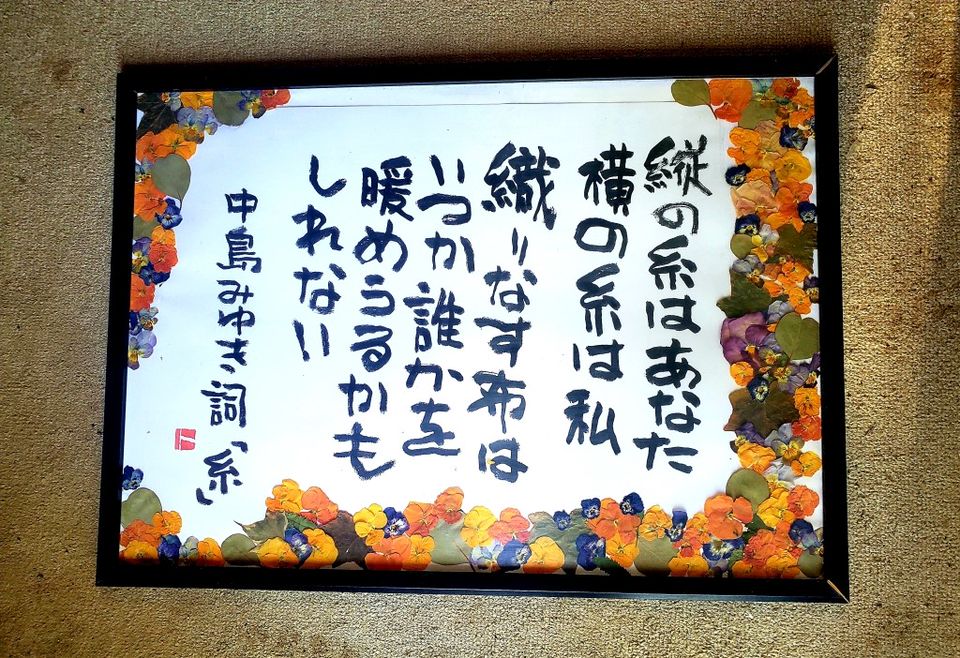 縦の糸はあなた
横の糸は私
織りなす布は
いつか誰かを
暖めうるかも
しれない
中島みゆき、詞「糸」